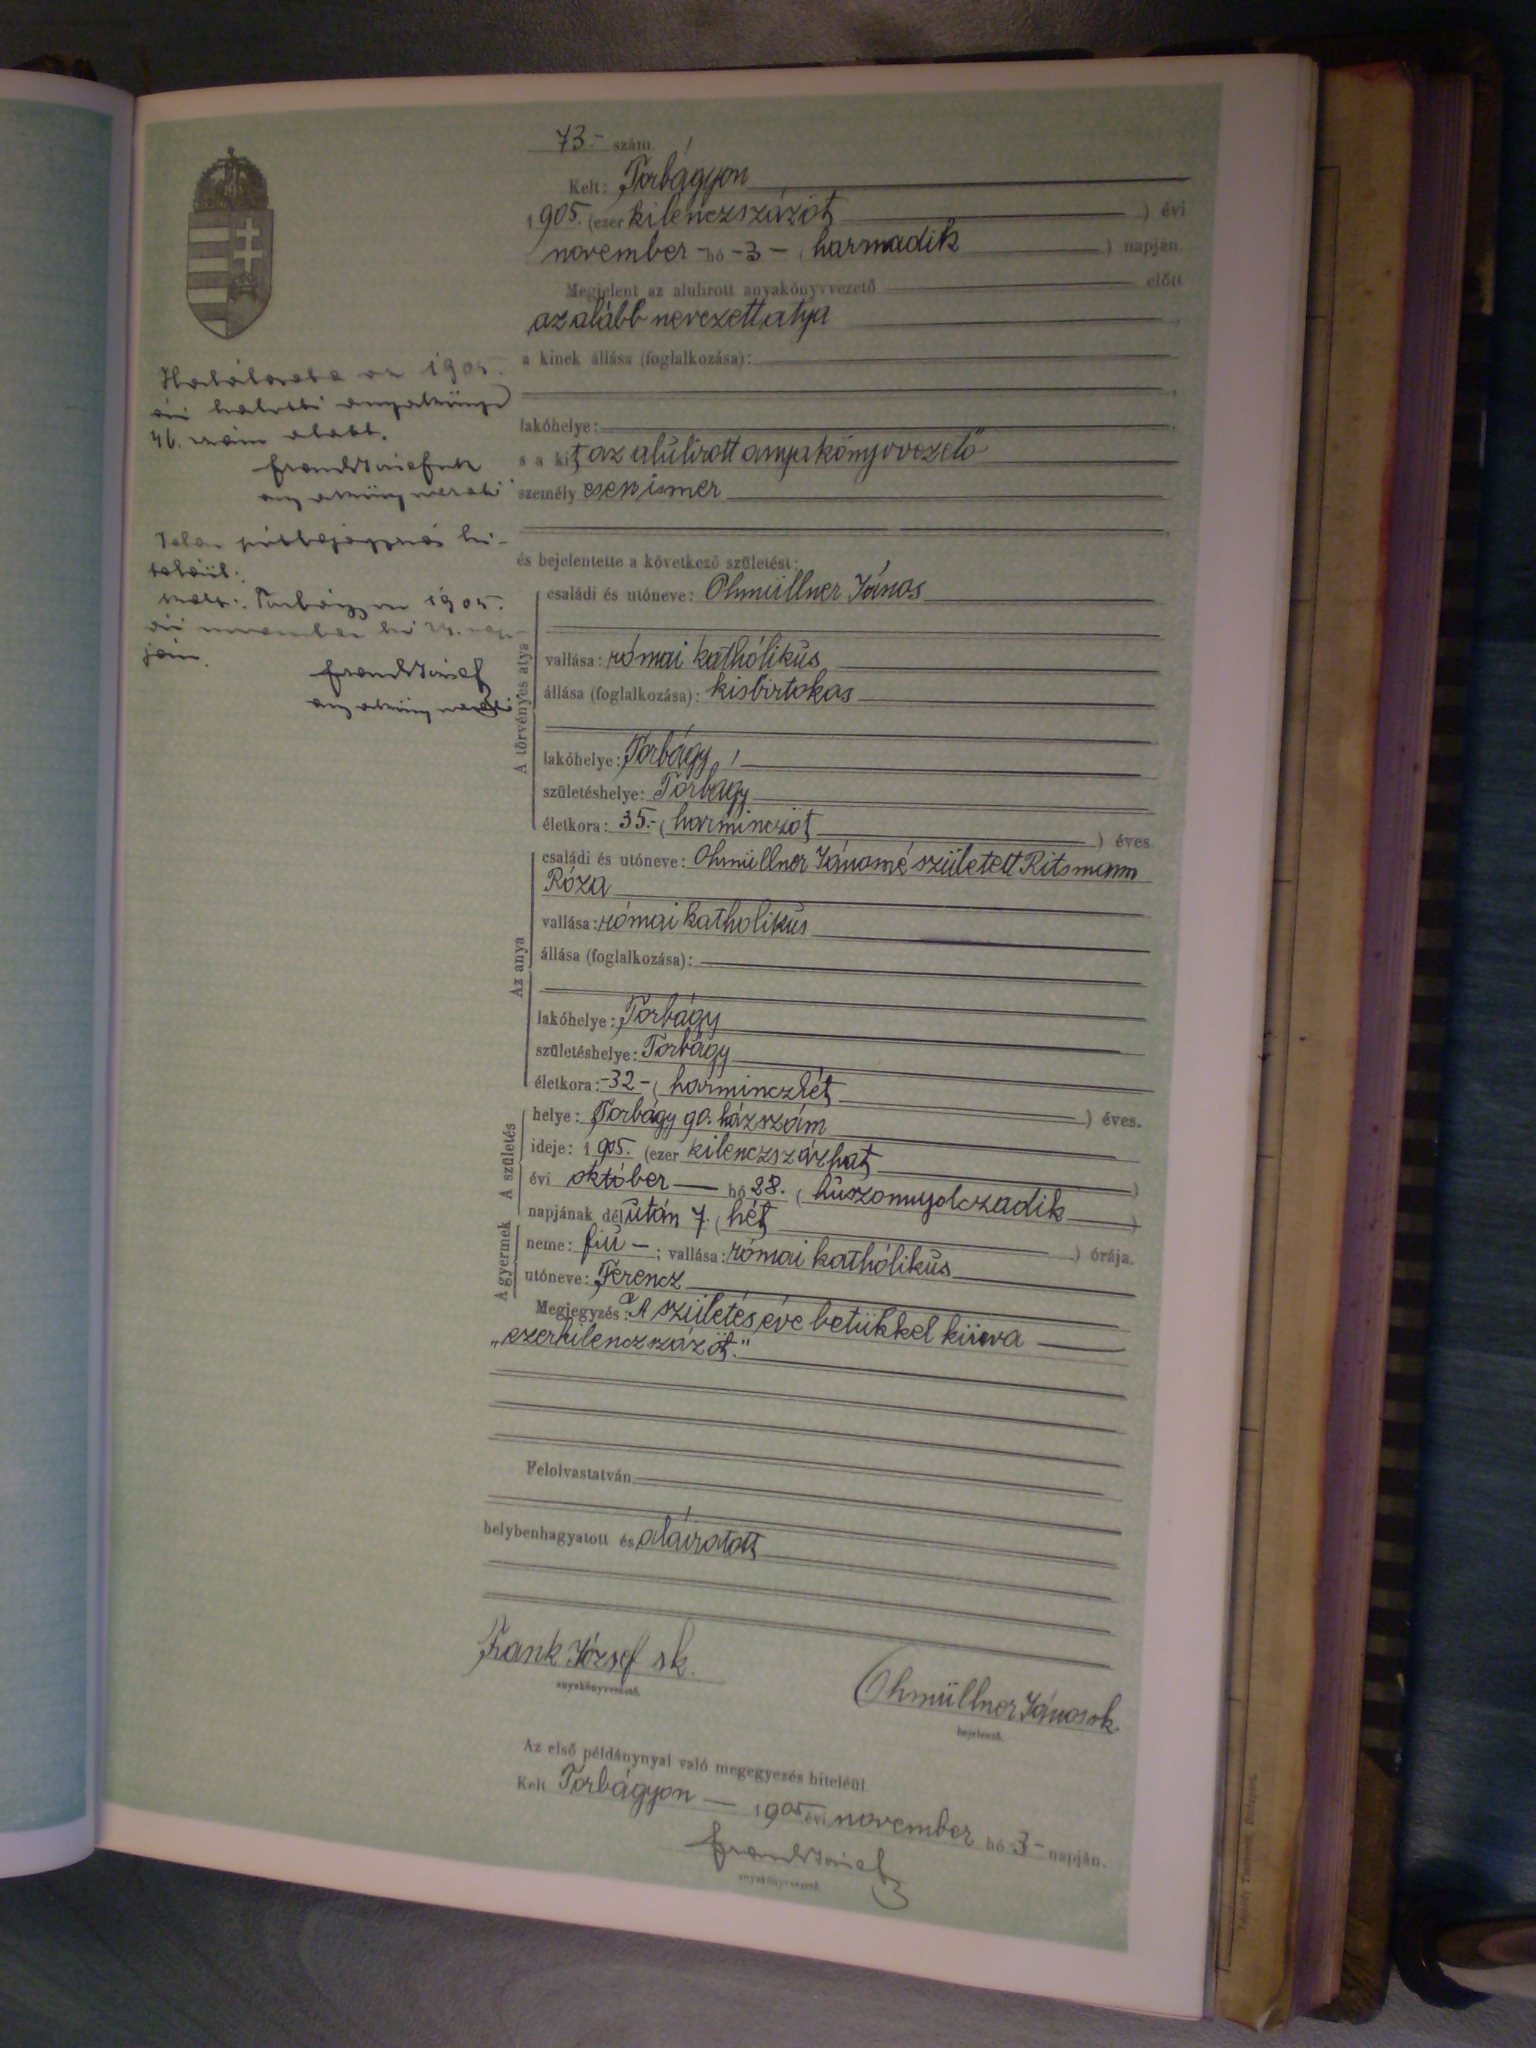 73.- szám.
Kelt: Torbágyon
1905. (ezer kilenczszázöt) évi
november hó -3- (harmadik) napján
Megjelent az alulirott anyakönyvvezető előtt
az alább nevezett atya
a kinek állása (foglalkozása):
lakóhelye:
s a kit az alulirott anyakönyvvezető
személyesen ismer
és bejelentette a következő születést:
A törvényes atya
családi és utóneve: Ohmüllner János
vallása: római kathólikus
állása (foglalkozása): kisbirtokas
lakóhelye: Torbágy,
születéshelye: Torbágy
életkora: 35.- (harminczöt) éves
Az anya
családi és utóneve: Ohmüllner Jánosné született Ritsmann
Róza
vallása: római katholikus
állása (foglalkozása):
lakóhelye: Torbágy
születéshelye: Torbágy
életkora: -32- (harminczkét) éves.
A születés
helye: Torbágy 90. házszám
ideje: 1905. (ezer kilenczszázhat)
évi október hó 28. (huszonnyolczadik)
napjának délután 7. (hét) órája.
A gyermek
neme: fiú -; vallása: római kathólikus
utóneve: Ferencz
Megjegyzés: A születés éve betükkel kiirva
„ezerkilenczszázöt."
Felolvastatván
helybenhagyatott és aláiratott
Frank József sk.
anyakönyvvezető.
Ohmüllner János sk.
bejelentő.
Az első példánynyal való megegyezés hiteléül.
Kelt Torbágyon 1905 évi november hó -3- napján.
Frank József
anyakönyvvezető
az 1905.
évi halotti anyakönyv
46. szám alatt.
Frank József
anyakönyvvezető
hi-
teléül.
Kelt: Torbágyon 1905.
évi november hó nap-
ján.
Frank József
anyakönyvvezető